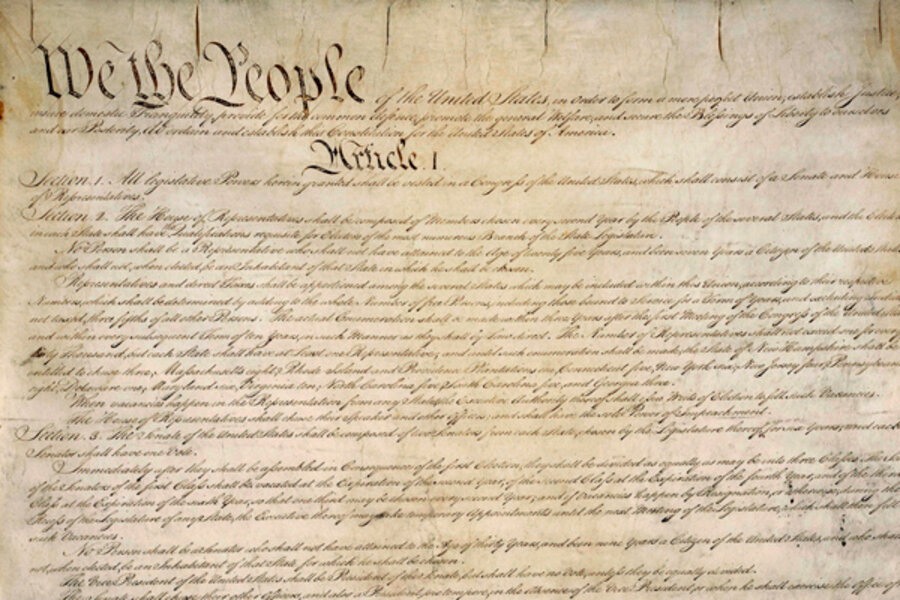 We the People of the United States, in Order to form a more perfect Union, establish Justice,
insure domestic Tranquility, provide for the common defence, promote the general Welfare, and secure the Blessings of Liberty to ourselves
and our Posterity, do ordain and establish this Constitution for the United States of America.
Article. I.
Section. 1. All legislative Powers herein granted shall be vested in a Congress of the United States, which shall consist of a Senate and House
of Representatives.
Section. 2. The House of Representatives shall be composed of Members chosen every second Year by the People of the several States, and the Electors
in each State shall have Qualifications requisite for Electors of the most numerous Branch of the State Legislature.
No Person shall be a Representative who shall not have attained to the Age of twenty five Years, and been seven Years a Citizen of the United States,
and who shall not, when elected, be an Inhabitant of that State in which he shall be chosen.
Representatives and direct Taxes shall be apportioned among the several States which may be included within this Union, according to their respective
Numbers, which shall be determined by adding to the whole Number of free Persons, including those bound to Service for a Term of Years, and excluding Indians
not taxed, three fifths of all other Persons. The actual Enumeration shall be made within three Years after the first Meeting of the Congress of the United States,
and within every subsequent Term of ten Years, in such Manner as they shall by Law direct. The Number of Representatives shall not exceed one for every
thirty Thousand, but each State shall have at Least one Representative; and until such enumeration shall be made, the State of New Hampshire shall be
entitled to chuse three, Massachusetts eight, Rhode-Island and Providence Plantations one, Connecticut five, New-York six, New Jersey four, Pennsylvania
eight, Delaware one, Maryland six, Virginia ten, North Carolina five, South Carolina five, and Georgia three.
When vacancies happen in the Representation from any State, the Executive Authority thereof shall issue Writs of Election to fill such Vacancies.
The House of Representatives shall chuse their Speaker and other Officers; and shall have the sole Power of Impeachment.
Section. 3. The Senate of the United States shall be composed of two Senators from each State, chosen by the Legislature thereof, for six Years; and each
Senator shall have one Vote.
Immediately after they shall be assembled in Consequence of the first Election, they shall be divided as equally as may be into three Classes. The
of the Senators of the first Class shall be vacated at the Expiration of the second Year, of the second Class at the Expiration of the fourth Year, and of the third
Class at the Expiration of the sixth Year, so that one third may be chosen every second Year; and if Vacancies happen by Resignation, or otherwise, during the
Recess of the Legislature of any State, the Executive thereof may make temporary Appointments until the next Meeting of the Legislature, which shall then fill
such Vacancies.
No Person shall be a Senator who shall not have attained to the Age of thirty Years, and been nine Years a Citizen of the United States, and who shall
not, when elected, be an Inhabitant of that State for which he shall be chosen.
The Vice President of the United States shall be President of the Senate, but shall have no Vote, unless they be equally divided.
The Senate shall chuse their other Officers, and also a President pro tempore, in the Absence of the Vice President, or when he shall exercise the Office of